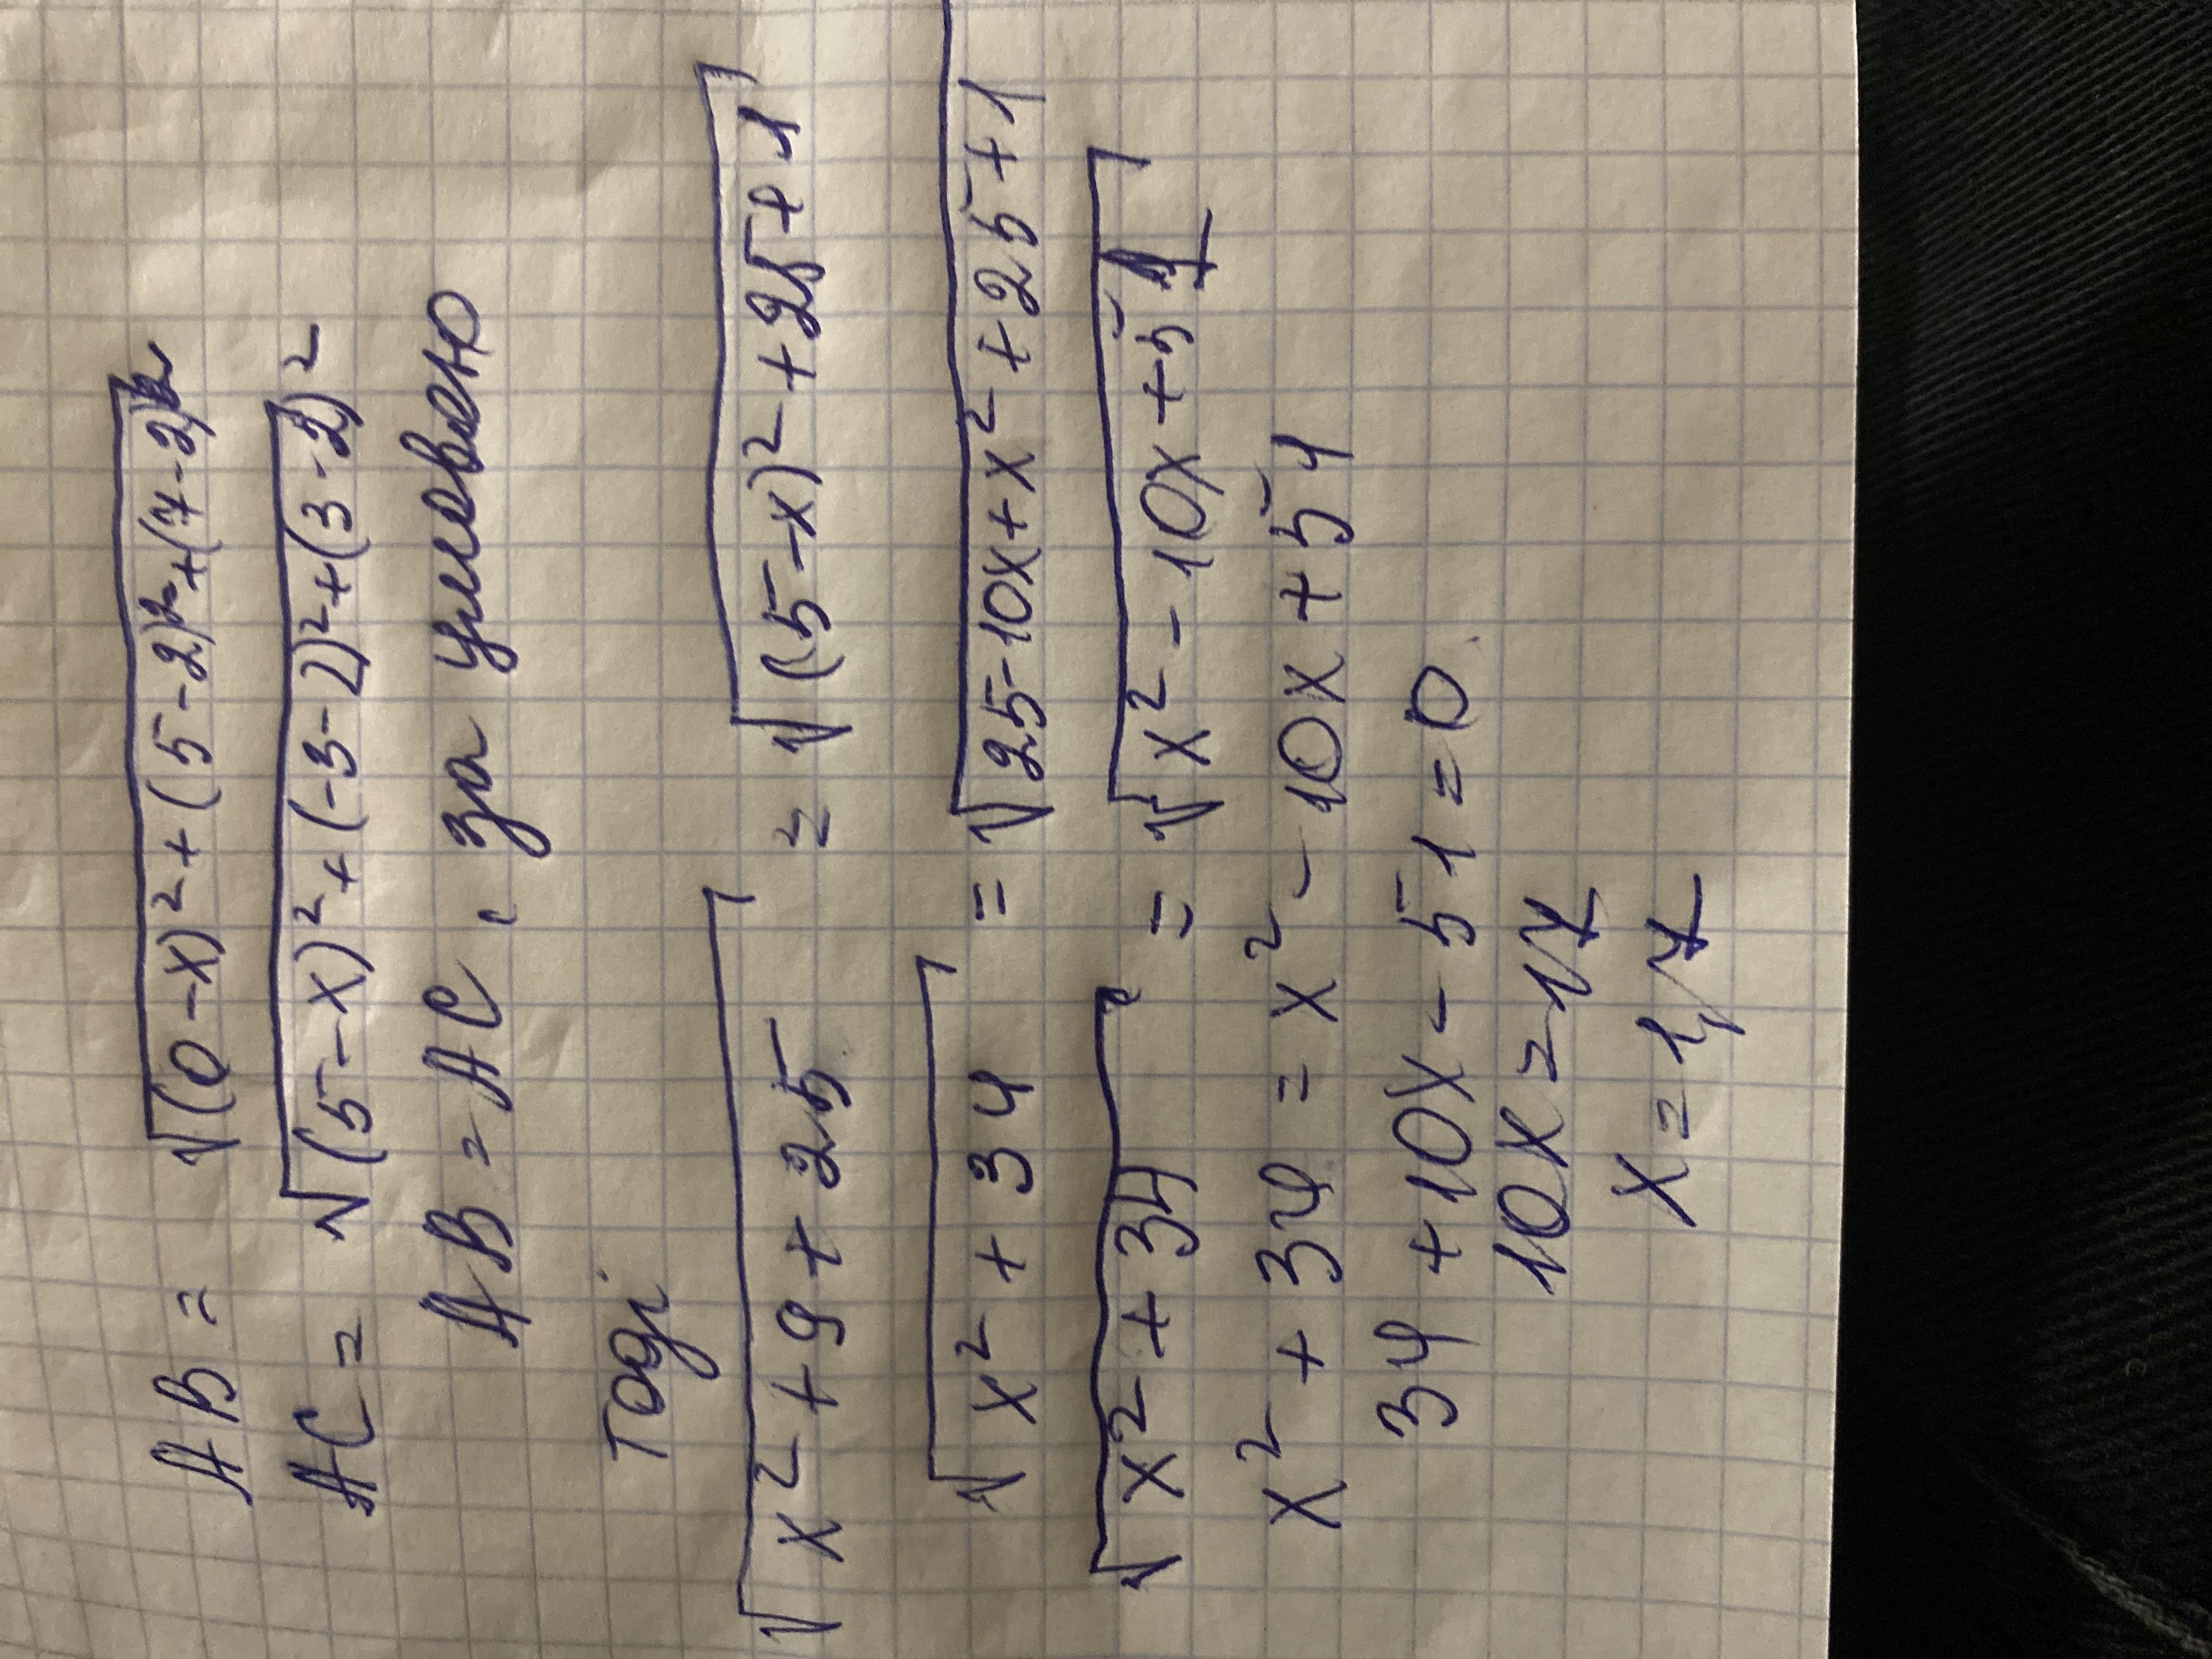 AB = √(0-x)²+(5-2)²+(7-2)²
AC = √(5-x)²+(-3-2)²+(3-2)²
AB = AC, за умовою
Тоді
√x²+9+25 = √(5-x)²+25+1
√x²+34 = √25-10x+x²+25+1
√x²+34 = √x²-10x+51
x²+34 = x²-10x+51
34+10x-51=0
10x=17
x=1,7